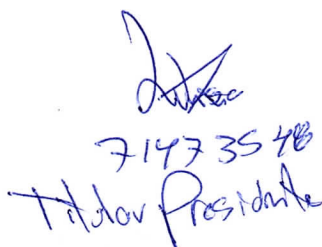 71473548
Titular Presidente